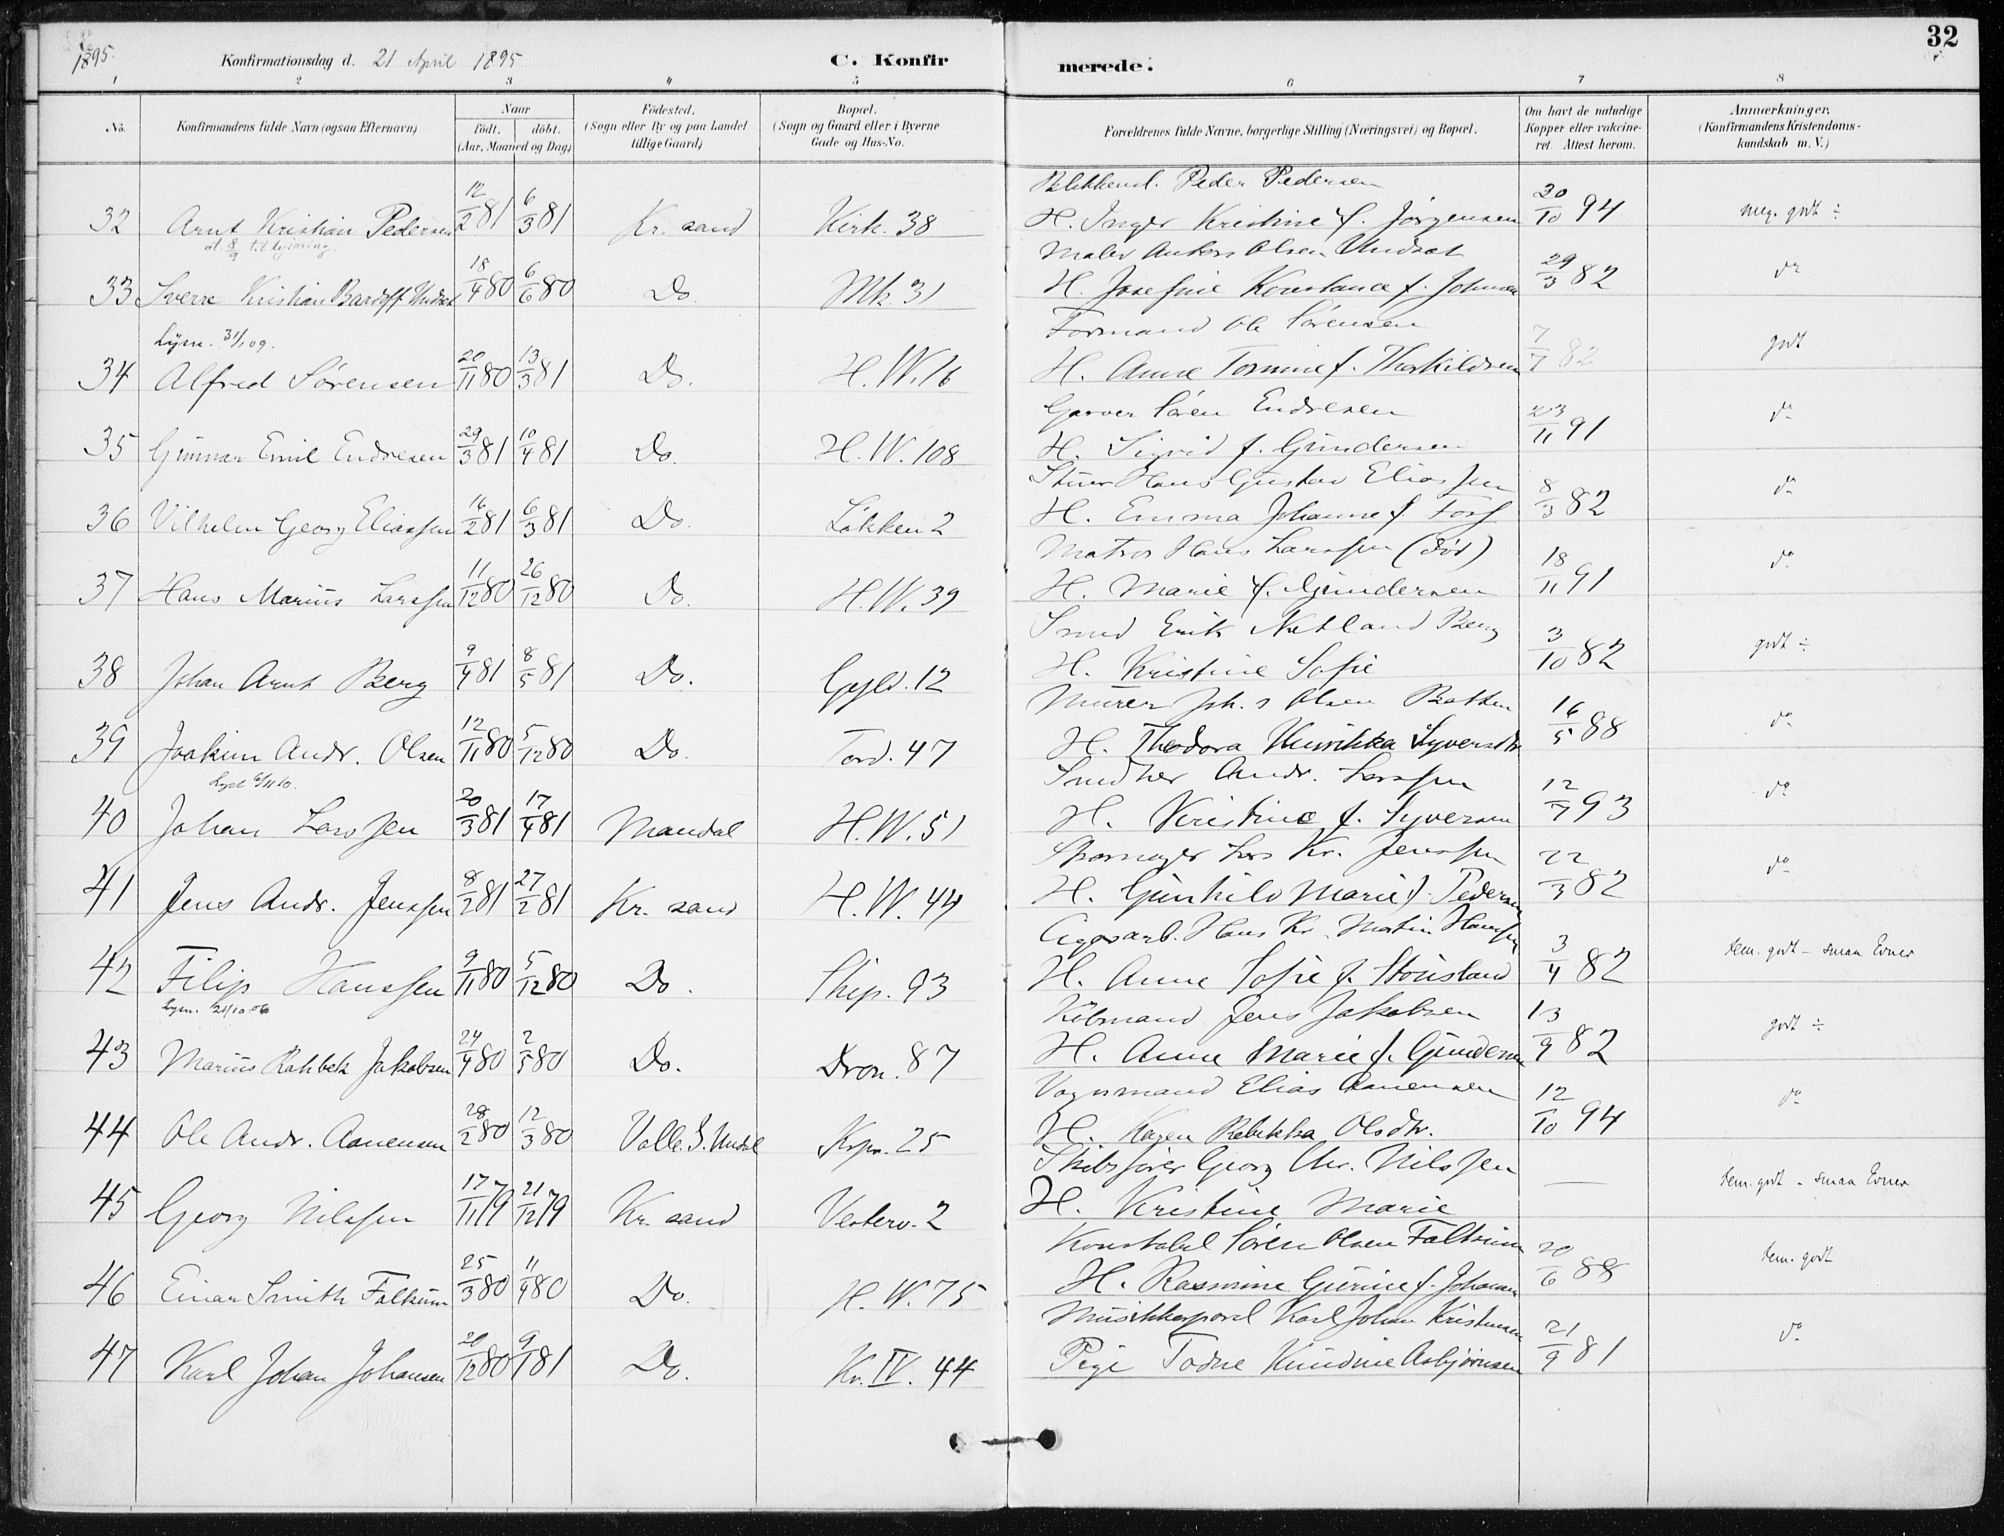 1895.
Konfirmationsdag d. 21 April 1895
C. Konfirmerede.
32
1 2 3 4 5 6 7 8
No.
Konfirmandens fulde Navn (ogsaa Efternavn)
Naar
födt. döbt.
(Aar, Maaned og Dag)
Födested.
(Sogn eller By og paa Landet
tillige Gaard)
Bopæl.
(Sogn og Gaard eller i Byerne
Gade og Hus-No.
Forældrenes fulde Navne, borgerlige Stilling (Næringsvei) og Bopæl.
Om havt de naturlige
Kopper eller vakcine-
ret. Attest herom.
Anmærkninger.
(Konfirmandens Kristendoms-
kundskab m. V.)
Peder Pedersen
32 Arnt Kristian Pedersen 12/2 81 6/3 81 Kr. sand Kirk. 38 H. Inger Kristine f. Jörgensen 30/10 94 meg. godt ÷
at. 8/9 til lysning.
Maler Anders Olsen Undset
33 Sverre Kristian Undset 18/4 80 6/6 80 Do. Mk. 31 H. Josefine Konstance f. 29/3 82 do
Formand Ole Sörensen
Lysn. 31/1 09.
34 Alfred Sørensen 20/11 80 13/3 81 Do. H. W. 16 H. Anne Tomine f. Thorkildsen 7/7 82 godt
Garver Sören Endresen
35 Gunnar Emil Endresen 29/3 81 10/4 81 Do. H. W. 108 H. Sigrid f. Gundersen 23/11 91 do
Stuer Hans Gustav Eliassen
36 Vilhelm Georg Eliassen 16/2 81 6/3 81 Do. Lökken 2 H. Emma Johanne f. 8/3 82 do
Matros Hans Larssen (död)
37 Hans Marius Larssen 11/12 80 26/12 80 Do. H. W. 39 H. Marie f. Gundersen 18/11 91 do
Smed Erik Netland Berg
38 Johan Arnt Berg 9/4 81 8/5 81 Do. Gyld. 12 H. Kristine Sofie 3/10 82 godt ÷
Murer Joh.s Olsen
39 Joakim Andr. Olsen 12/11 80 5/12 80 Do. Tord. 47 H. Theodora Henrikka Syversdtr 16/5 88 do
Lyst 6/11 10.
Andr. Larssen
40 Johan Larssen 20/3 81 17/4 81 Mandal H. W. 51 H. Kristine f. Syversen 12/7 93 do
Lars Kr. Jenssen
41 Jens Andr. Jenssen 8/2 81 27/2 81 Kr. sand H. W. 44 H. Gunhild Marie f. Pedersen 22/3 82 do
Cigararb. Hans Kr. Martin Hanssen
42 Filip Hanssen 9/11 80 5/12 80 Do. Skip. 93 H. Anne Sofie f. 3/4 82 tem. godt - smaa Evner
Lysn. 21/10 06
Köbmand Jens Jakobsen
43 Marius Rahbek Jakobsen 24/4 80 2/5 80 Do. Dron. 87 H. Anne Marie f. Gundersen 13/9 82 godt ÷
Vognmand Elias Aanensen
44 Ole Andr. Aanensen 28/2 80 12/3 80 Valle S. Undal Krpr. 25 H. Karen Rebekka Olsdtr. 12/10 94 do
Skibsförer Georg Chr. Nilssen
45 Georg Nilssen 17/11 79 21/12 79 Kr. sand Vesterv. 2 H. Kristine Marie — tem. godt - smaa Evner
Konstabel Sören Olsen Falkum
46 Einar Smith Falkum 25/3 80 11/4 80 Do. H. W. 75 H. Rasmine Gurine f. Johansen 20/6 88 tem. godt
Musikkorporal Karl Johan Kristensen
47 Karl Johan Johansen 20/12 80 9/1 81 Do. Kv. IV. 44 Pige Todne Asbjørnsen 21/9 81 do